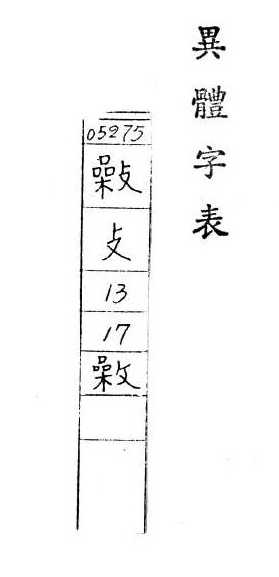 異體字表
05275
攴
13
17